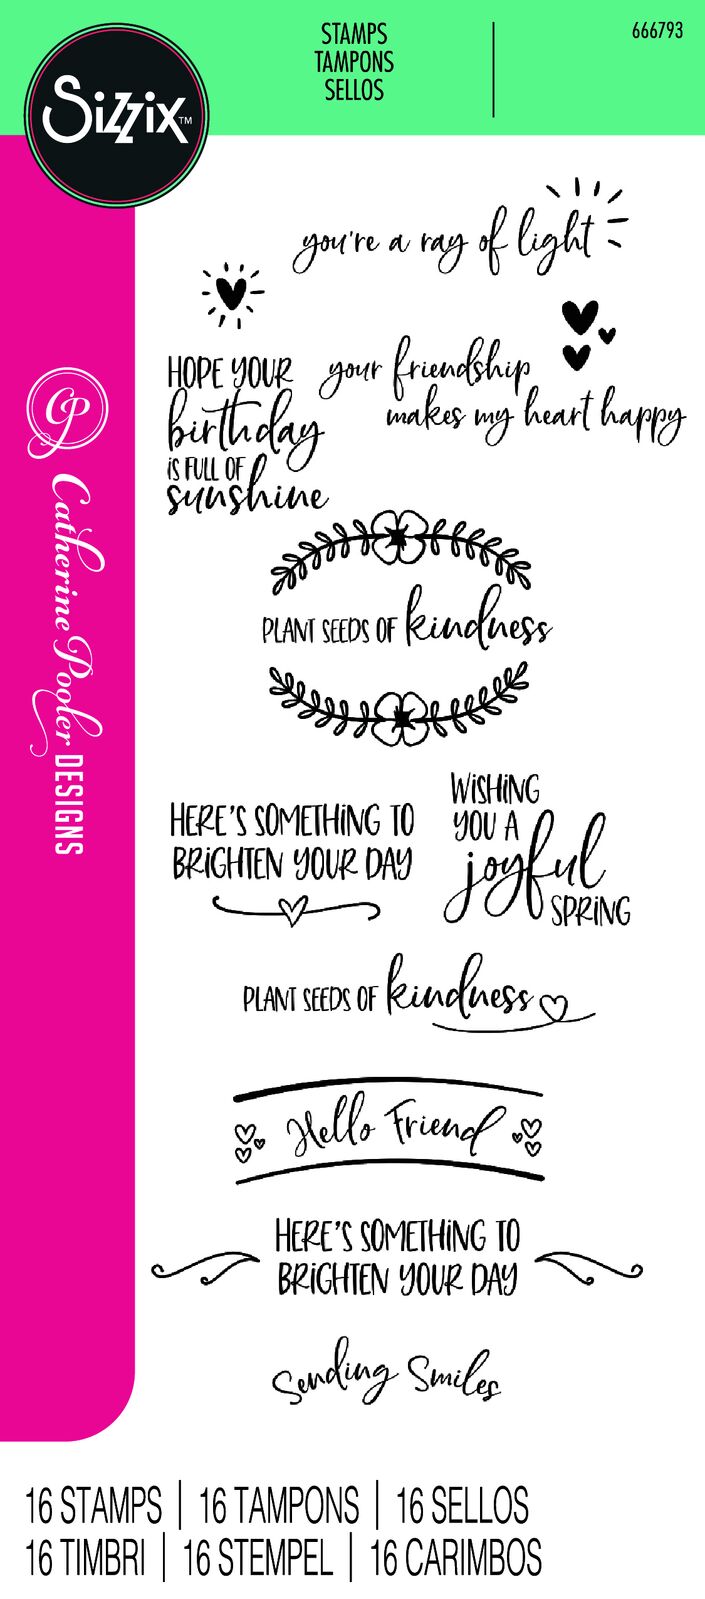 STAMPS
TAMPONS
SELLOS
666793
Sizzix™
you're a ray of light
HOPE YOUR
birthday
is FULL OF
sunshine
your friendship
makes my heart happy
CP
Catherine Pooler DESIGNS
PLANT SEEDS OF kindness
HERE'S SOMETHiNG TO
BRiGHTEN YOUR DAY
WiSHiNG
YOU A
joyful
SPRiNG
PLANT SEEDS OF kindness
Hello Friend
HERE'S SOMETHiNG TO
BRiGHTEN YOUR DAY
Sending Smiles
16 STAMPS | 16 TAMPONS | 16 SELLOS
16 TIMBRI | 16 STEMPEL | 16 CARIMBOS